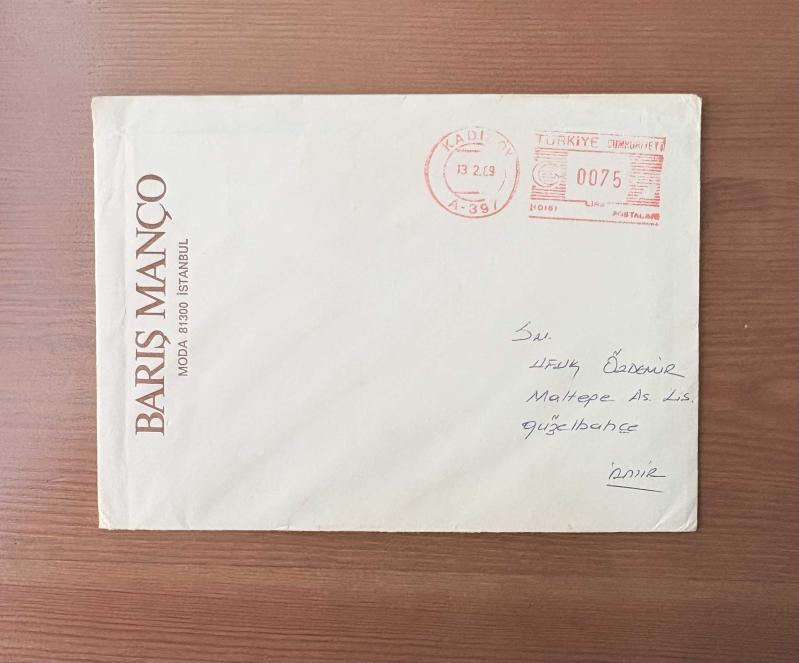 BARIŞ MANÇO
MODA 81300 İSTANBUL
KADIKÖY
13.2.89
A-397
TÜRKİYE CUMHURİYETİ
0075
LİRA
POSTALARI
Sn.
Ufuk Özdemir
Maltepe As. Lis.
Güzelbahçe
İzmir